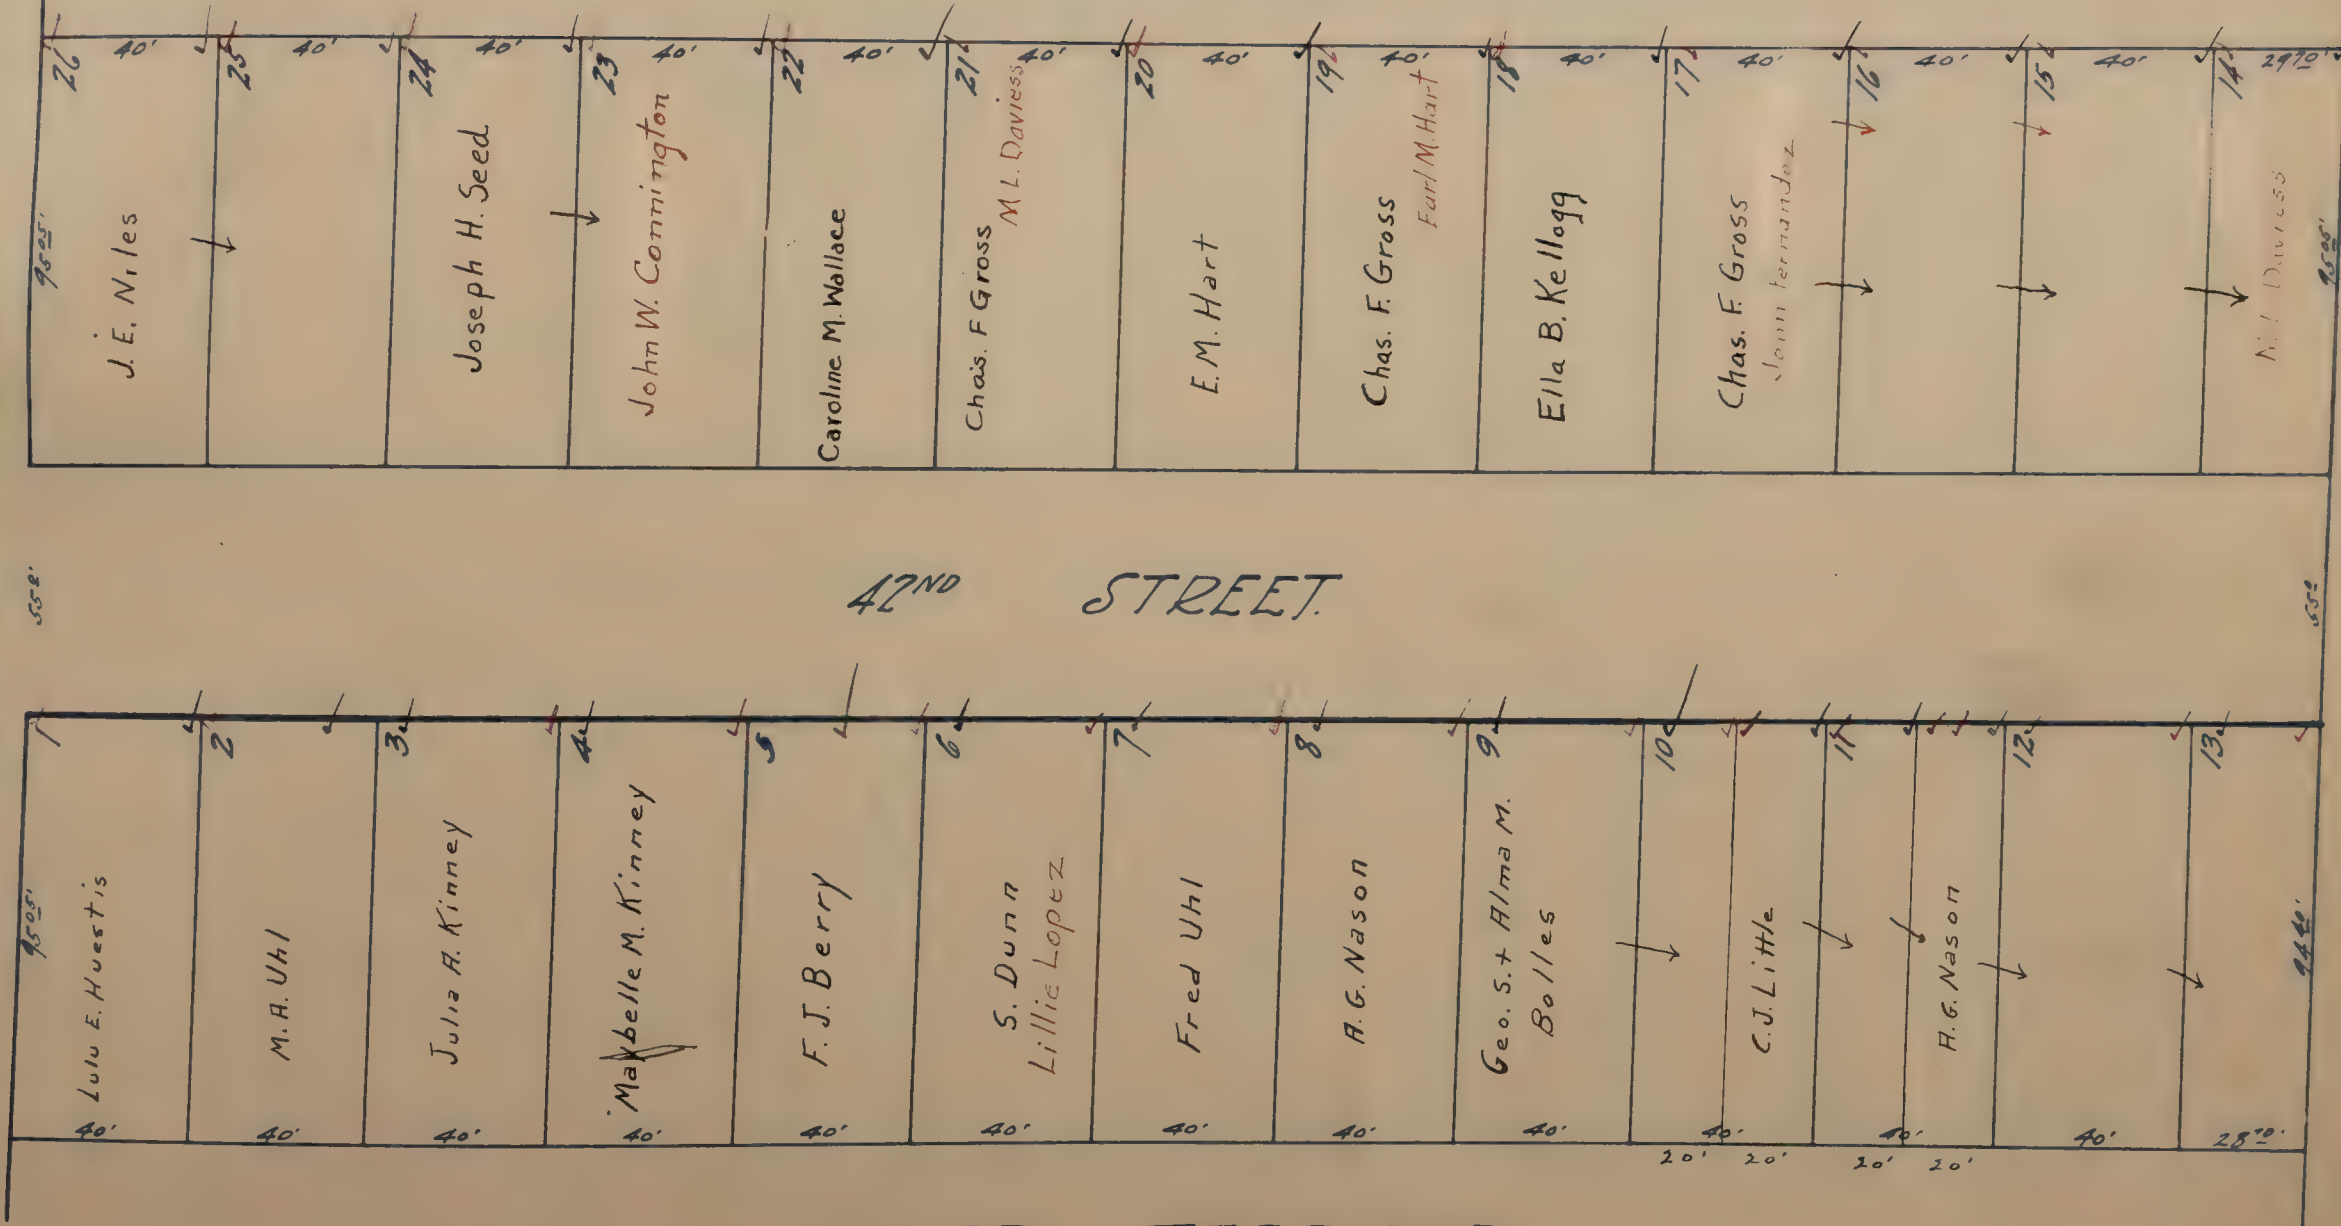 26 40' 25 40' 24 40' 23 40' 22 40' 21 40' 20 40' 19 40' 18 40' 17 40' 16 40' 15 40' 14 29 70'
95 05'
J. E. Niles
Joseph H. Seed
John W. Connington
Caroline M. Wallace
Chas. F Gross
M L. Daviess
E. M. Hart
Chas. F. Gross
Earl M. Hart
Ella B. Kellogg
Chas. F. Gross
95 05'
55 0'
42ND STREET.
55 0
1 2 3 4 5 6 7 8 9 10 11 12 13
95 05'
Lulu E. Huestis
M. A. Uhl
Julia A. Kinney
Maybelle M. Kinney
F. J. Berry
S. Dunn
Lillie Lopez
Fred Uhl
A. G. Nason
Geo. S. + Alma M.
Bolles
C. J. Little
A. G. Nason
94 40'
40' 40' 40' 40' 40' 40' 40' 40' 40' 40' 40' 40' 28 70'
20' 20' 20' 20'